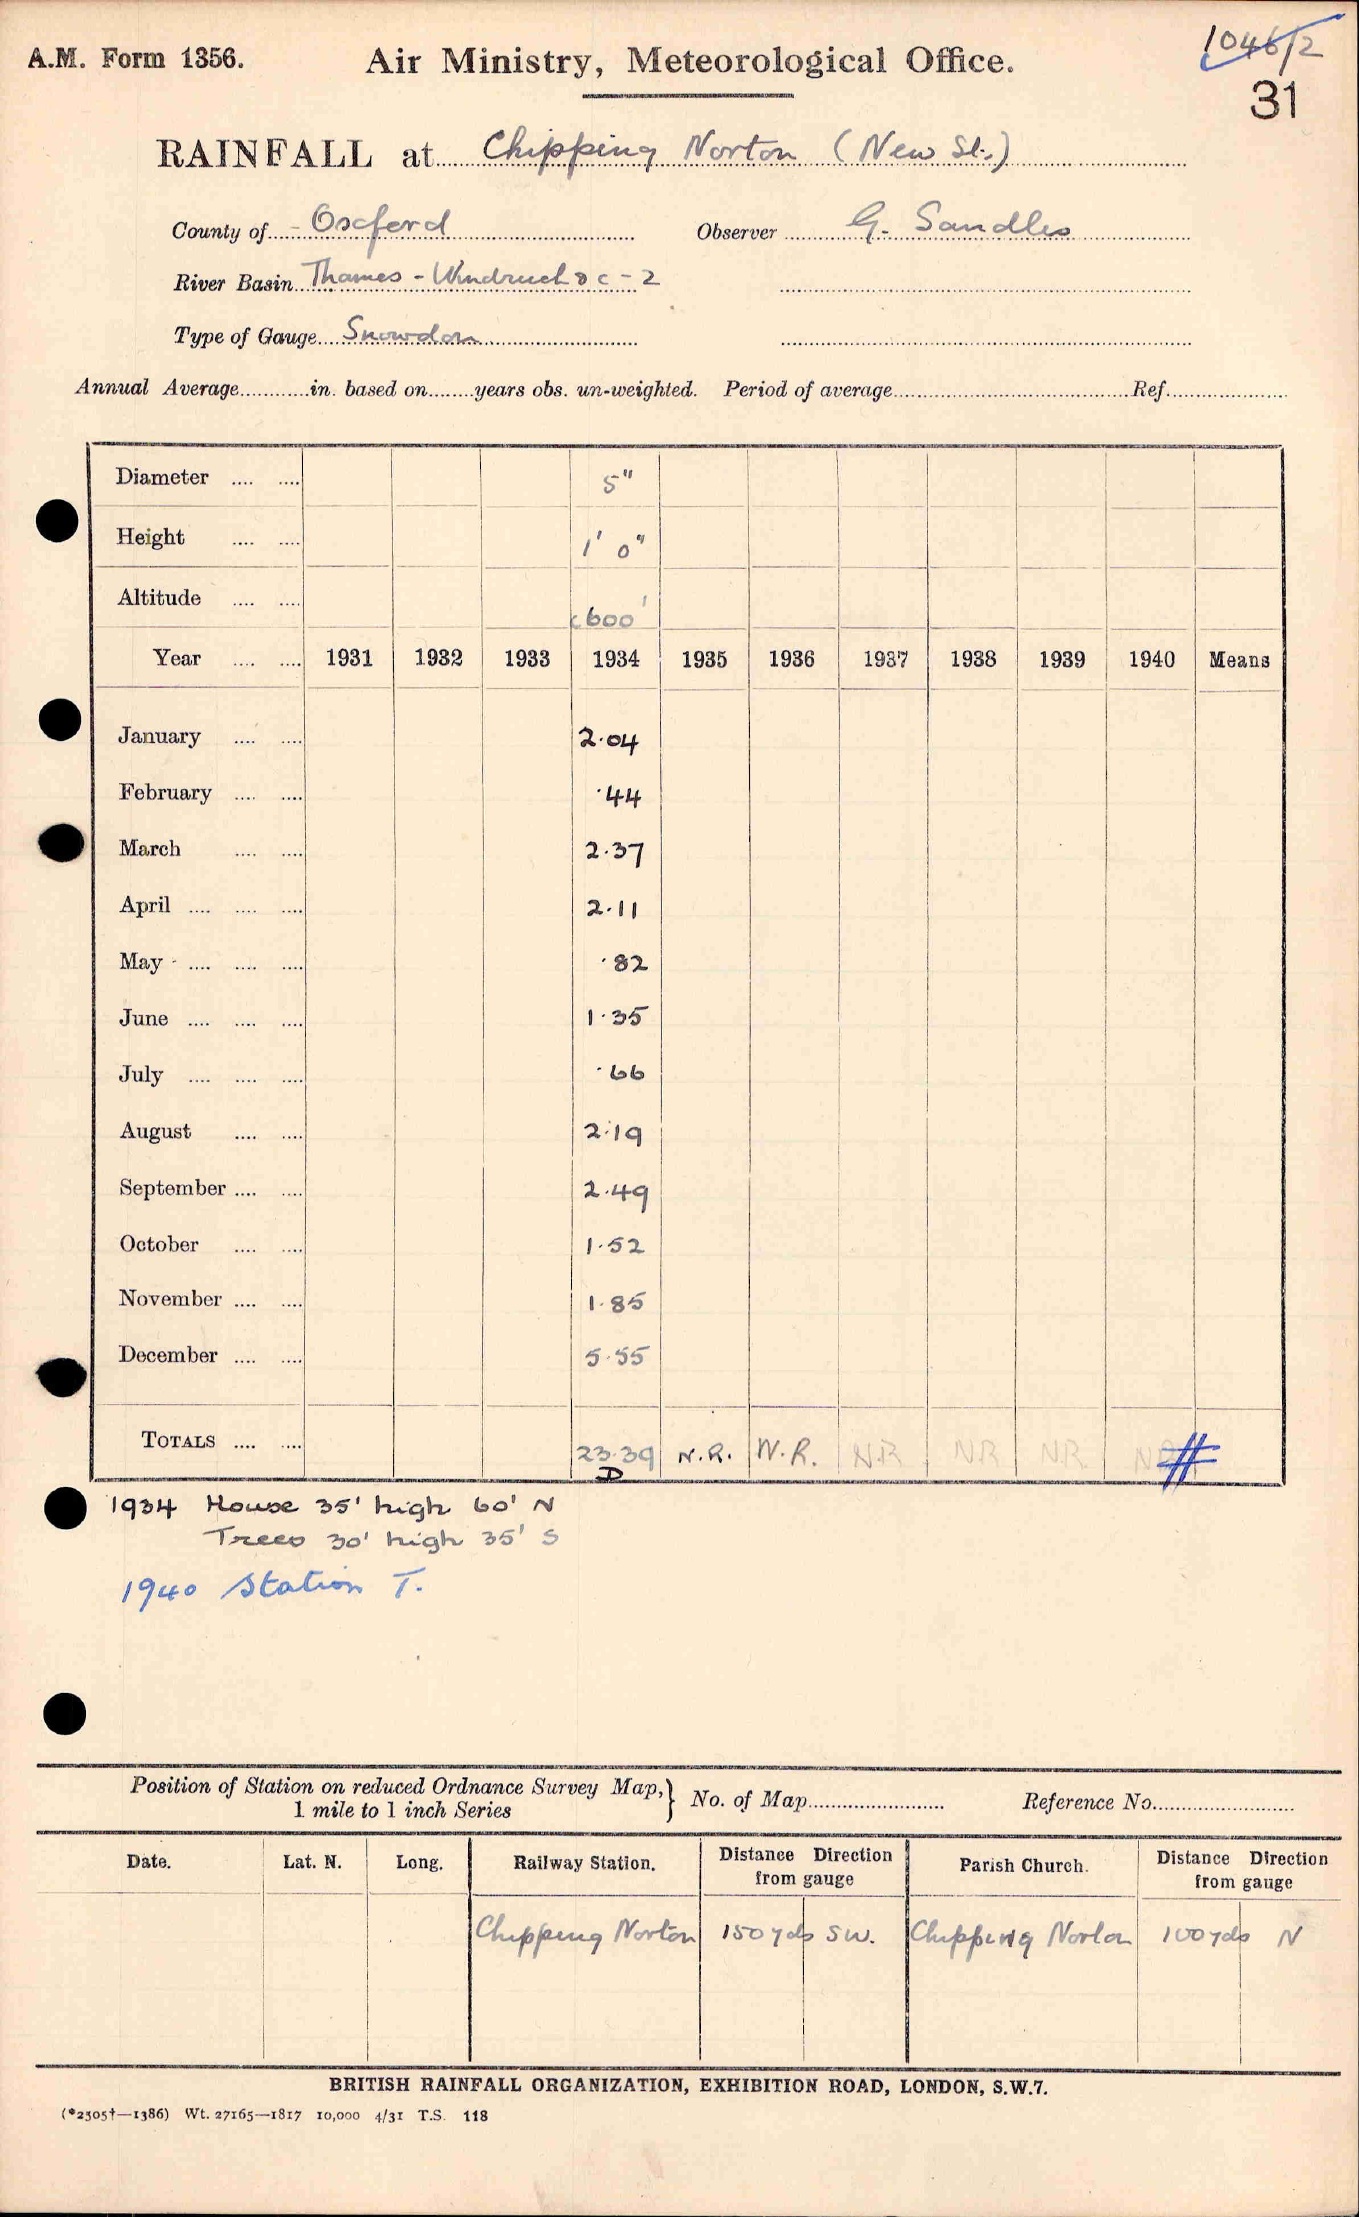 1046/2
A.M. Form 1356. Air Ministry, Meteorological Office.
31
RAINFALL at Chipping Norton (New St.)
County of Oxford Observer G. Sandles
River Basin Thames - Windrush &c - 2
Type of Gauge Snowdon
Annual Average............in. based on........years obs. un-weighted. Period of average.................Ref.................
Diameter .... .... 5"
Height .... .... 1' 0"
Altitude .... .... c600'
Year .... .... 1931 1932 1933 1934 1935 1936 1937 1938 1939 1940 Means
January .... .... 2.04
February .... .... .44
March .... .... 2.37
April .... .... .... 2.11
May .... .... .... .82
June .... .... .... 1.35
July .... .... .... .66
August .... .... 2.19
September .... .... 2.49
October .... .... 1.52
November .... .... 1.85
December .... .... 5.55
TOTALS .... .... 23.39 N.R. N.R. NR NR NR NR #
D
1934 House 35' high 60' N
Trees 30' high 35' S
1940 Station T.
Position of Station on reduced Ordnance Survey Map,} No. of Map........................ Reference No.........................
1 mile to 1 inch Series
Date. Lat. N. Long. Railway Station. Distance Direction Parish Church. Distance Direction
from gauge from gauge
Chipping Norton 150 yds SW. Chipping Norton 100 yds N
BRITISH RAINFALL ORGANIZATION, EXHIBITION ROAD, LONDON, S.W.7.
(*2505†—1386) Wt. 27165—1817 10,000 4/31 T.S. 118